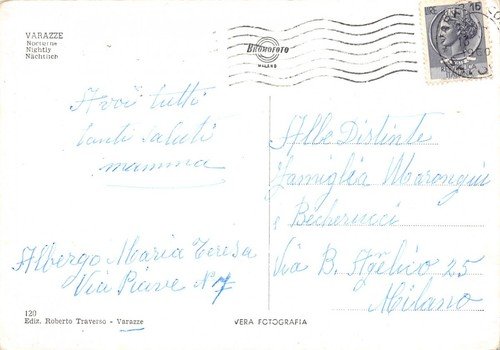 VARAZZE
Notturno
Nightly
Nächtlich
BROMOFOTO
MILANO
LIRE 15
A voi tutti
tanti saluti
mamma
Albergo Maria Teresa
Via Piave N 7
Alle Distinte
Famiglia Marongiu
e Becherucci
Via B. Angelico 25
Milano
120
Ediz. Roberto Traverso - Varazze
VERA FOTOGRAFIA